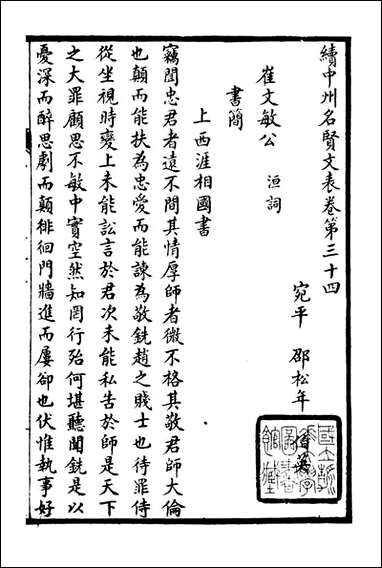 續中州名賢文表卷第三十四
宛平 邵松年
崔文敏公 洹詞
書簡
上西涯相國書
竊聞忠君者遠不間其情厚師者微不格其敬君師大倫
也顛而能扶為忠愛而能諫為敬銑趙之賤士也待罪侍
從坐視時變上未能訟言於君次未能私告於師是天下
之大罪顧思不敏中實空然知罔行殆何堪聽聞銑是以
憂深而醉思劇而顛徘徊門牆進而屢卻也伏惟執事好